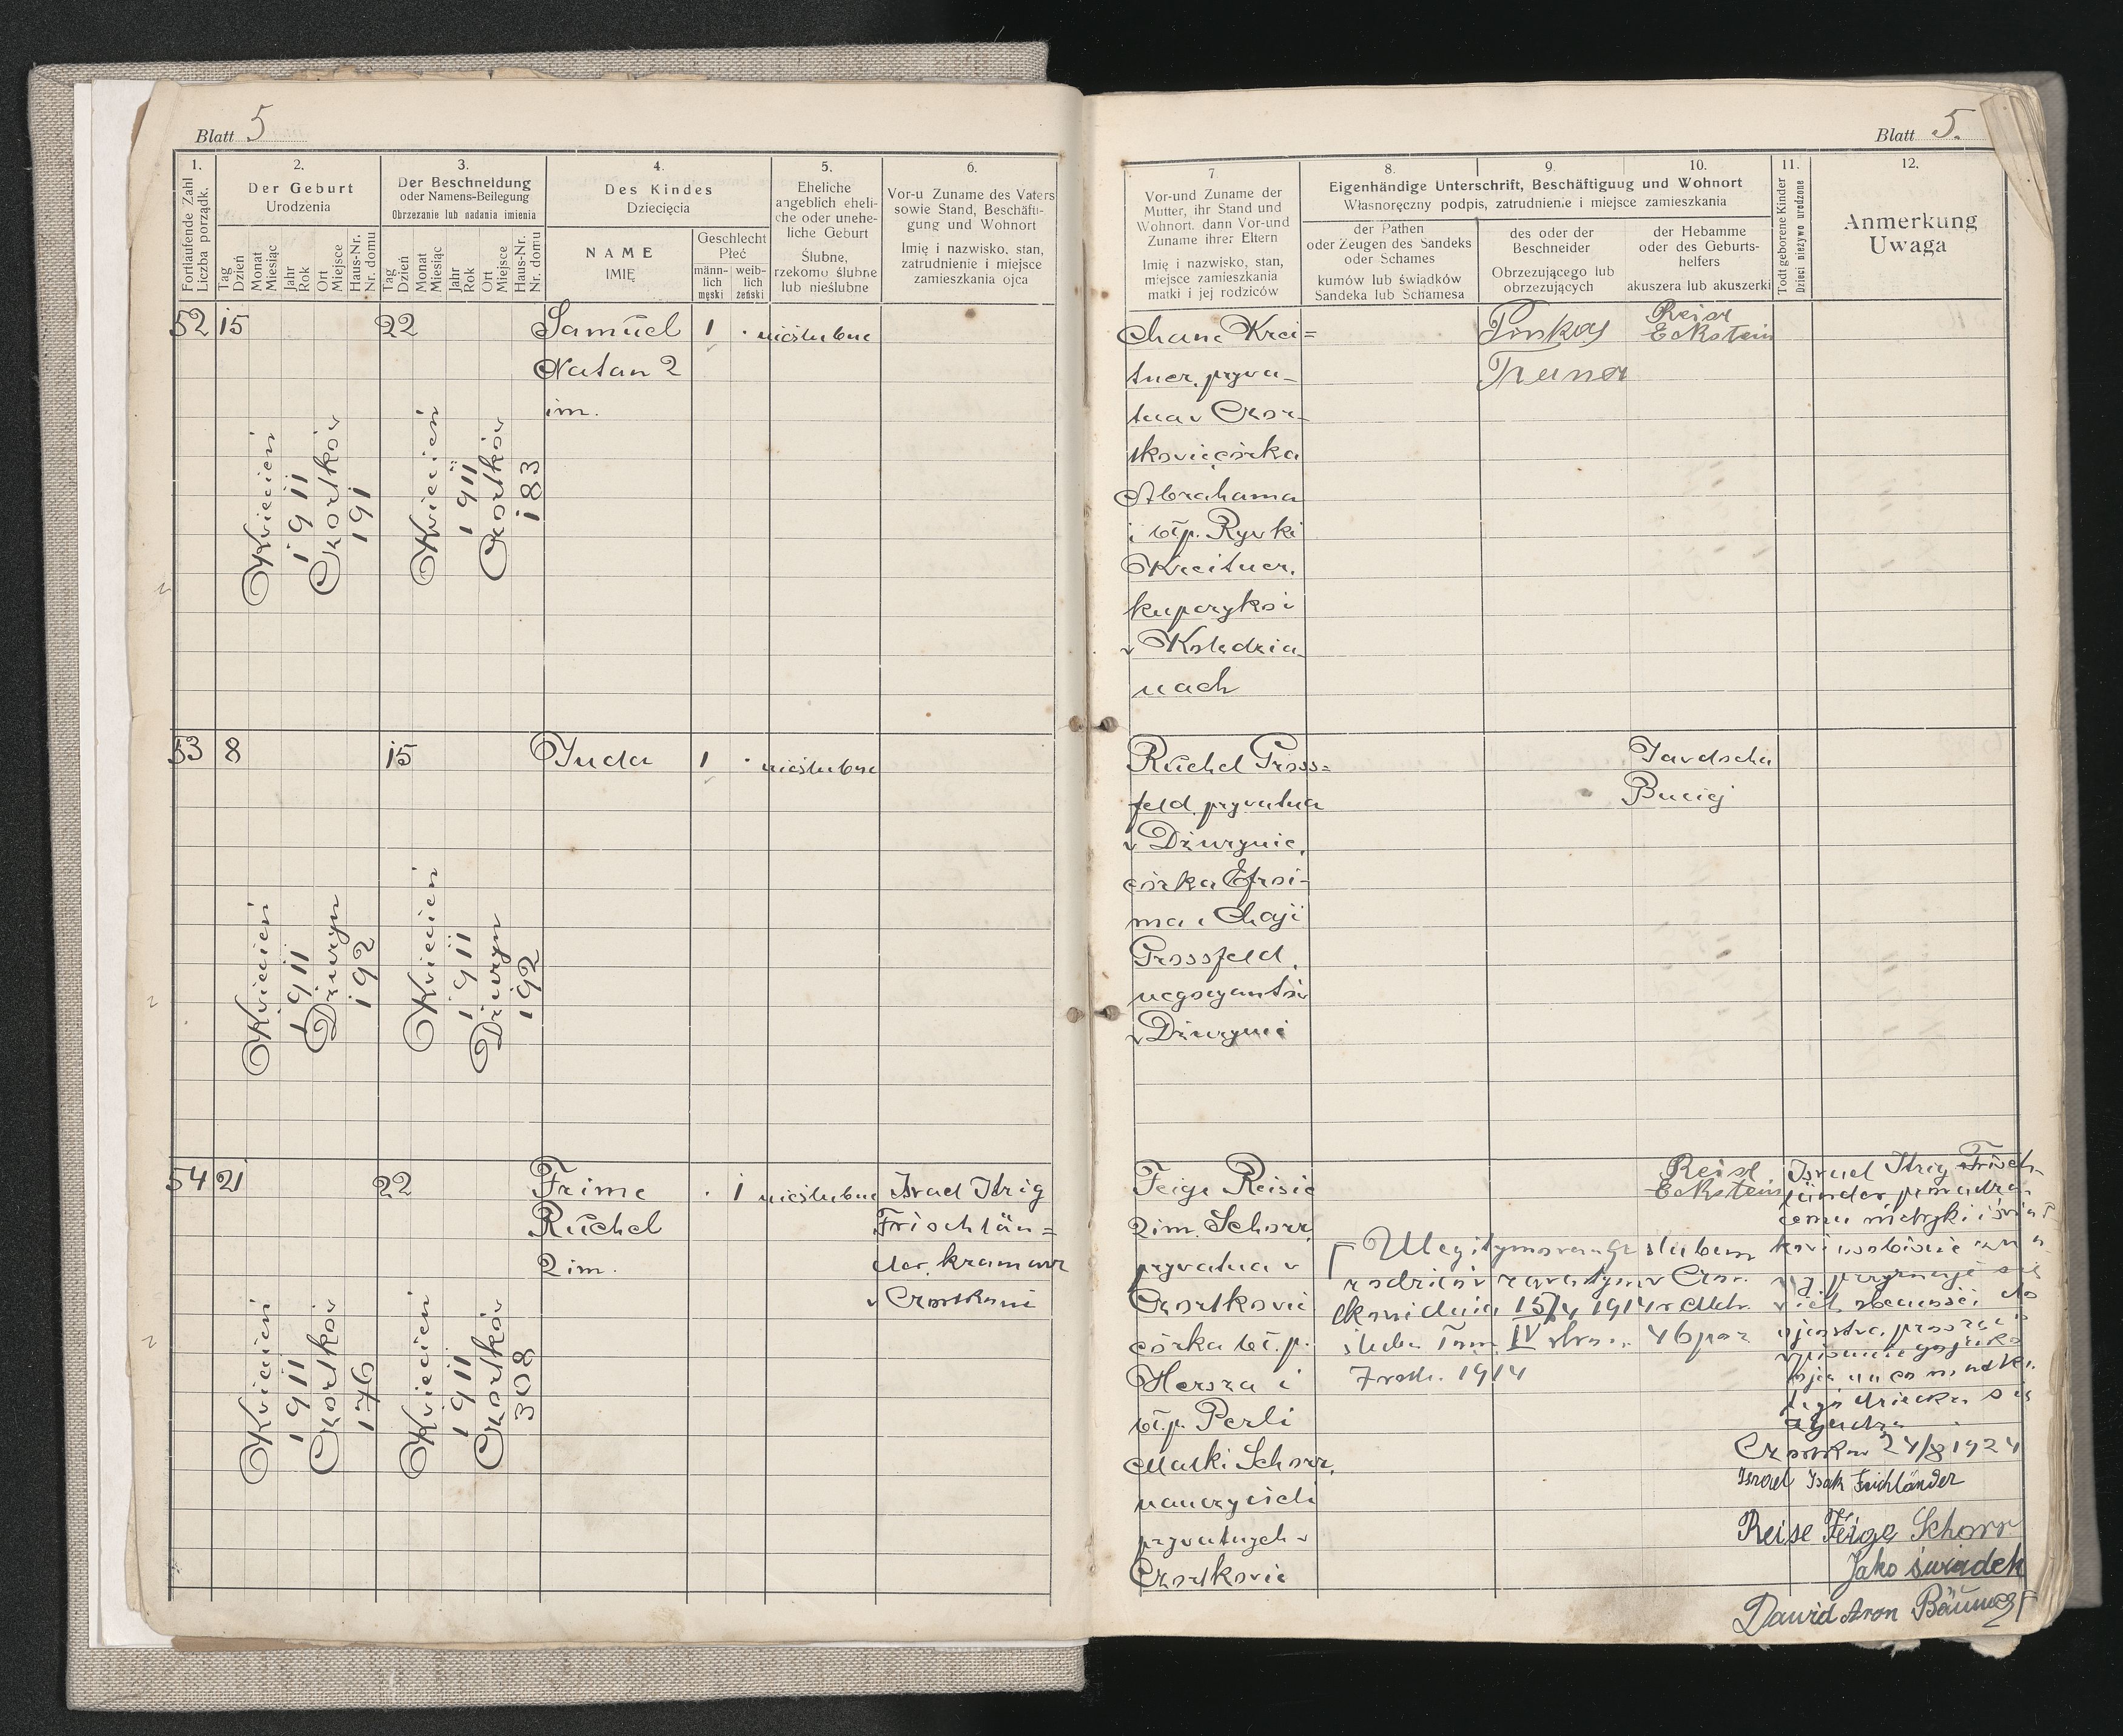 Blatt 5
1.
Fortlaufende Zahl
Liczba porządk.
2.
Der Geburt
Urodzenia
Tag
Dzień
Monat
Miesiąc
Jahr
Rok
Ort
Miejsce
Haus-Nr.
Nr. domu
3.
Der Beschneidung
oder Namens-Beilegung
Obrzezanie lub nadania imienia
Tag
Dzień
Monat
Miesiąc
Jahr
Rok
Ort
Miejsce
Haus-Nr.
Nr. domu
4.
Des Kindes
Dziecięcia
NAME
IMIĘ
Geschlecht
Płeć
männ-
lich
męski
weib-
lich
żeński
5.
Eheliche
angeblich eheli-
che oder unehe-
liche Geburt
Ślubne,
rzekomo ślubne
lub nieślubne
6.
Vor-u Zuname des Vaters
sowie Stand, Beschäfti-
gung und Wohnort
Imię i nazwisko, stan,
zatrudnienie i miejsce
zamieszkania ojca
52
15
Kwiecień
1911
Czortków
191
22
Kwiecień
1911
Czortków
183
Samuel
Natan 2
im.
1
nieślubne
53
8
Kwiecień
1911
Dżuryn
192
15
Kwiecień
1911
Dżuryn
192
Juda
1
nieślubne
54
21
Kwiecień
1911
Czortków
176
22
Kwiecień
1911
Czortków
308
Frime
Ruchel
2 im.
1
nieślubne
Israel Itzig
Frischlän=
der, kramarz
w Czortkowie
Blatt 5.
7
Vor-und Zuname der
Mutter, ihr Stand und
Wohnort. dann Vor-und
Zuname ihrer Eltern
Imię i nazwisko, stan,
miejsce zamieszkania
matki i jej rodziców
Eigenhändige Unterschrift, Beschäftigung und Wohnort
Własnoręczny podpis, zatrudnienie i miejsce zamieszkania
8.
der Pathen
oder Zeugen des Sandeks
oder Schames
kumów lub świadków
Sandeka lub Schamesa
9.
des oder der
Beschneider
Obrzezującego lub
obrzezujących
10.
der Hebamme
oder des Geburts-
helfers
akuszera lub akuszerki
11.
Todt geborene Kinder
Dzieci nieżywo urodzone
12.
Anmerkung
Uwaga
Chane Krei=
tner, prywa-
tna w Czor-
tkowie, córka
Abrahama
i błp. Rywki
Kreitner,
kupczyków
w Kolędzia-
nach
Pinkas
Reise
Eckstein
Ruchel Gross=
feld, prywatna
w Dżurynie,
córka Efroi-
ma i Chaji
Grossfeld,
negocyantów
w Dżurynie
Jawdocha
Feige Reisie
2 im. Schorr,
prywatna w
Czortkowie
córka błp.
Hersza i
błp. Perli
Malki Schorr,
nauczycieli
prywatnych w
Czortkowie
Reise
Eckstein
Legitymowana ślubem
rodziców zawartym w Czor-
tkowie dnia 15/4 1914
ślubu Tom IV 46 poz
7 1914
Israel Itzig Frisch-
länder
Czortków 24/8 1924
Israel Isak Frichländer
Reise Feige Schorr
Jako świadek
Dawid Aron